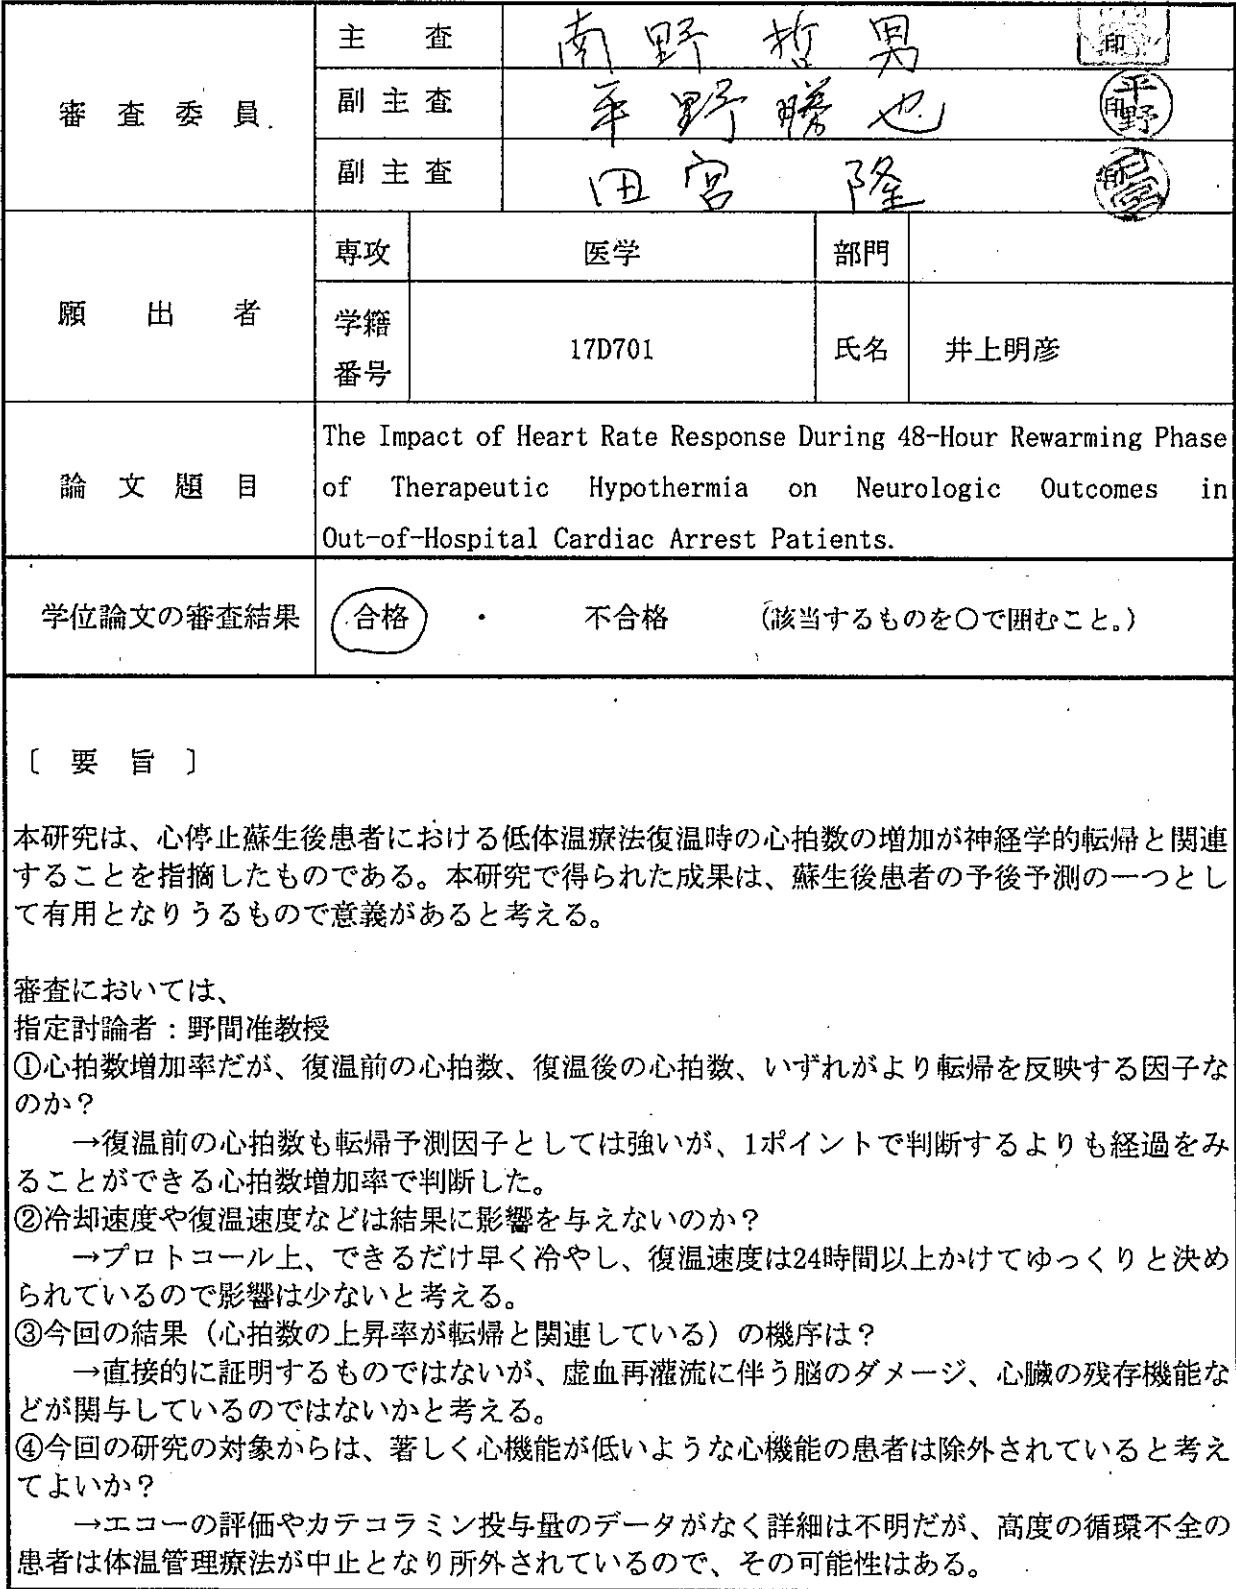 審査委員
主査 南野哲男 印
副主査 平野勝也 印 平野
副主査 田宮 隆 印
願出者
専攻 医学 部門
学籍番号 17D701 氏名 井上明彦
論文題目
The Impact of Heart Rate Response During 48-Hour Rewarming Phase
of Therapeutic Hypothermia on Neurologic Outcomes in
Out-of-Hospital Cardiac Arrest Patients.
学位論文の審査結果 合格 ・ 不合格 (該当するものを○で囲むこと。)
〔 要 旨 〕
本研究は、心停止蘇生後患者における低体温療法復温時の心拍数の増加が神経学的転帰と関連
することを指摘したものである。本研究で得られた成果は、蘇生後患者の予後予測の一つとし
て有用となりうるもので意義があると考える。
審査においては、
指定討論者：野間准教授
①心拍数増加率だが、復温前の心拍数、復温後の心拍数、いずれがより転帰を反映する因子な
のか？
→復温前の心拍数も転帰予測因子としては強いが、1ポイントで判断するよりも経過をみ
ることができる心拍数増加率で判断した。
②冷却速度や復温速度などは結果に影響を与えないのか？
→プロトコール上、できるだけ早く冷やし、復温速度は24時間以上かけてゆっくりと決め
られているので影響は少ないと考える。
③今回の結果（心拍数の上昇率が転帰と関連している）の機序は？
→直接的に証明するものではないが、虚血再灌流に伴う脳のダメージ、心臓の残存機能な
どが関与しているのではないかと考える。
④今回の研究の対象からは、著しく心機能が低いような心機能の患者は除外されていると考え
てよいか？
→エコーの評価やカテコラミン投与量のデータがなく詳細は不明だが、高度の循環不全の
患者は体温管理療法が中止となり所外されているので、その可能性はある。